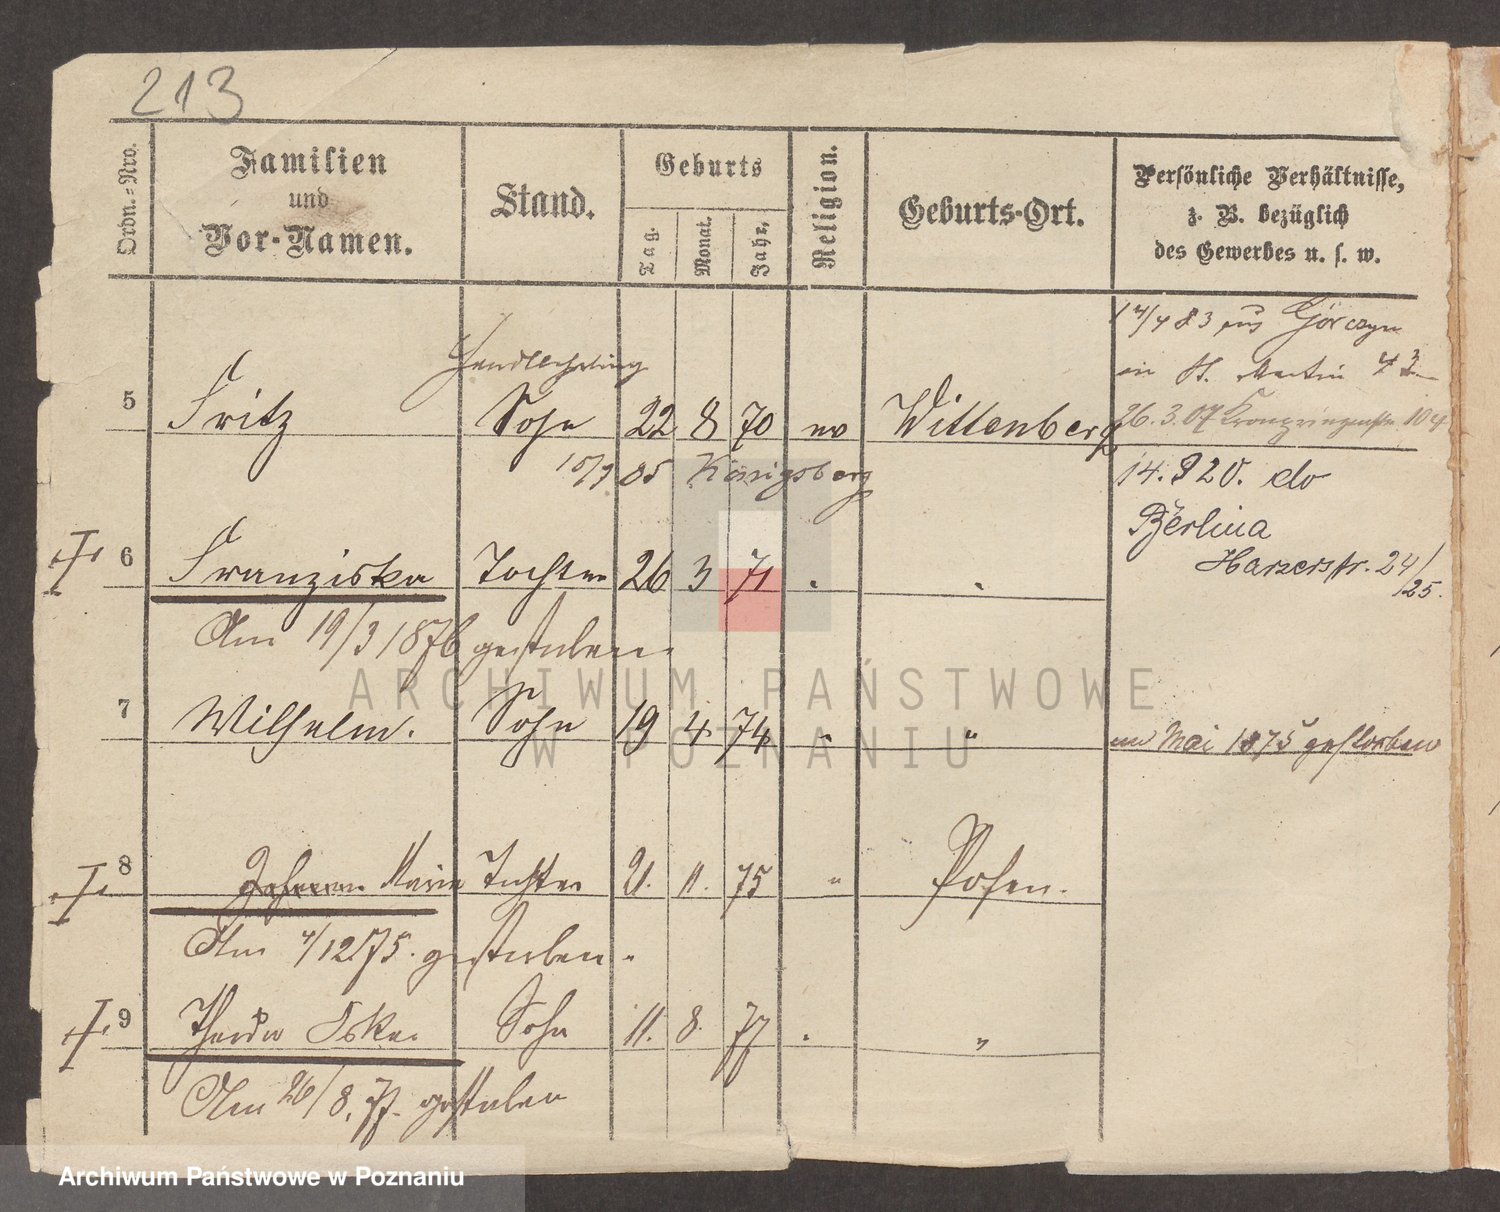 213
Ordn.-Nro.
Familien
und
Vor-Namen.
Stand.
Geburts
Tag.
Monat.
Jahr,
Religion.
Geburts-Ort.
Persönliche Verhältnisse,
z. B. bezüglich
des Gewerbes u. s. w.
14/4 83 aus Górczyn
in St. Martin 43
Handlehrling
5 Fritz Sohn 22 8 70 ev Wittenberg
26.3.07 Kronprinzenstr. 104
85 Königsberg
14. 920. do
Berlina
Harzerstr. 24/25.
6 Franziska Tochter 26 3 71 " "
Am 19/3 1876 gestorben
7 Wilhelm. Sohn 19 4 74 " " im Mai 1875 gestorben
8 Johanna Marie Tochter 21. 11. 75 " Posen.
Am 4/12 75. gestorben.
9 Theodor Oskar Sohn 11. 8. 77 " "
Am 26/8. 77. gestorben
ARCHIWUM PAŃSTWOWE
W POZNANIU
Archiwum Państwowe w Poznaniu